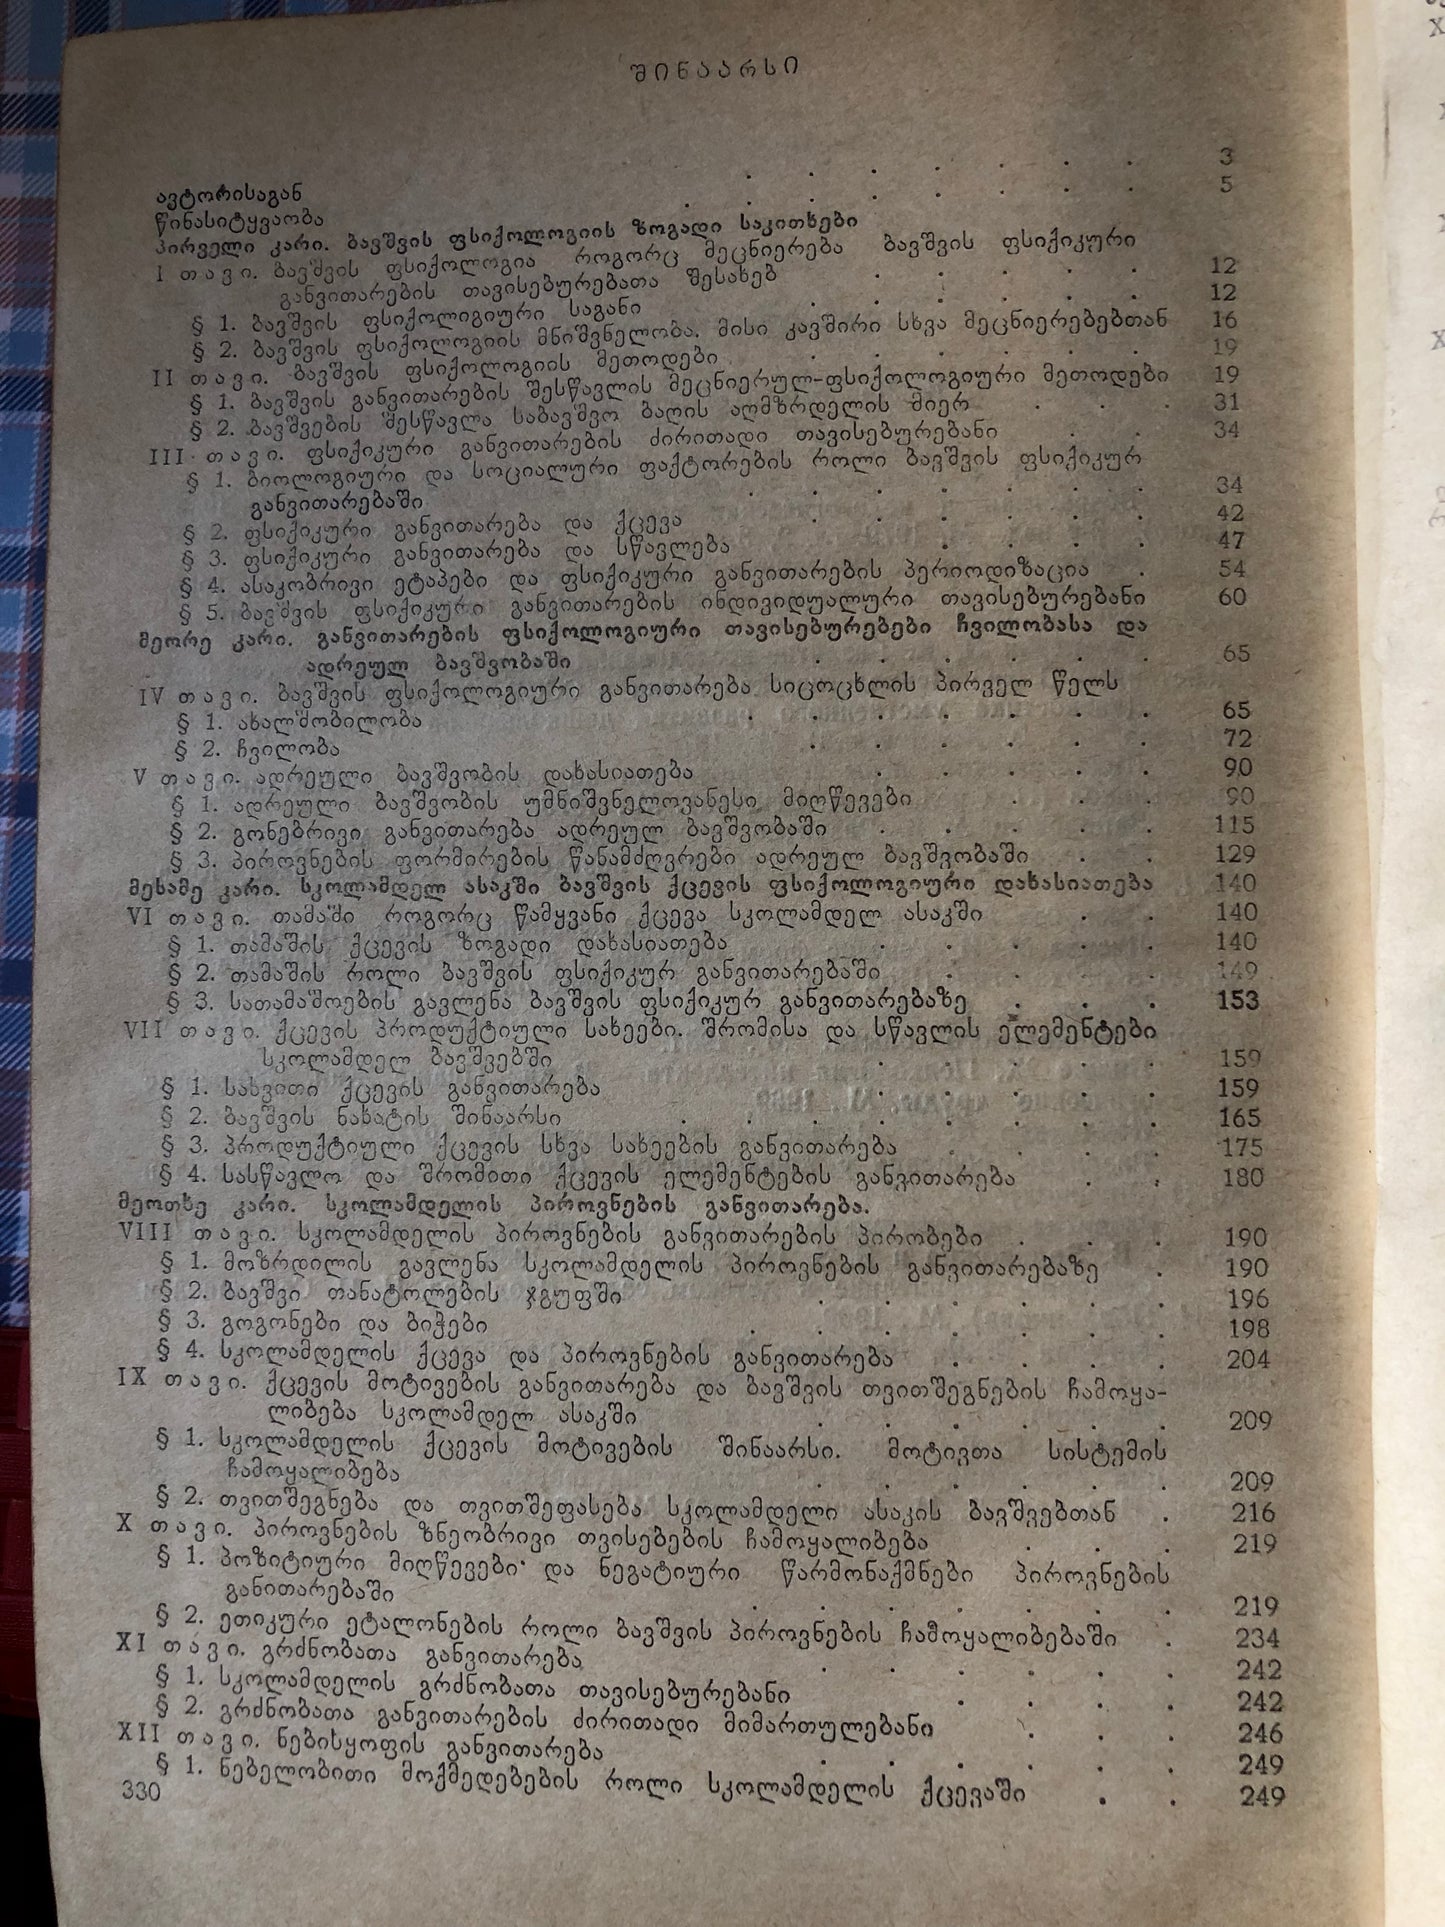 შინაარსი
ავტორისაგან . . . . . . . 3
წინასიტყვაობა . . . . . . . . 5
პირველი კარი. ბავშვის ფსიქოლოგიის ზოგადი საკითხები
I თავი. ბავშვის ფსიქოლოგია როგორც მეცნიერება ბავშვის ფსიქიკური
განვითარების თავისებურებათა შესახებ . . . . . 12
§ 1. ბავშვის ფსიქოლიგიური საგანი . . . . . . 12
§ 2. ბავშვის ფსიქოლოგიის მნიშვნელობა. მისი კავშირი სხვა მეცნიერებებთან 16
II თავი. ბავშვის ფსიქოლოგიის მეთოდები . . . . . . 19
§ 1. ბავშვის განვითარების შესწავლის მეცნიერულ-ფსიქოლოგიური მეთოდები 19
§ 2. ბავშვების შესწავლა საბავშვო ბაღის აღმზრდელის მიერ . . . 31
III თავი. ფსიქიკური განვითარების ძირითადი თავისებურებანი . . 34
§ 1. ბიოლოგიური და სოციალური ფაქტორების როლი ბავშვის ფსიქიკურ
განვითარებაში . . . . . . . 34
§ 2. ფსიქიკური განვითარება და ქცევა . . . . . . 42
§ 3. ფსიქიკური განვითარება და სწავლება . . . . 47
§ 4. ასაკობრივი ეტაპები და ფსიქიკური განვითარების პერიოდიზაცია . 54
§ 5. ბავშვის ფსიქიკური განვითარების ინდივიდუალური თავისებურებანი 60
მეორე კარი. განვითარების ფსიქოლოგიური თავისებურებები ჩვილობასა და
ადრეულ ბავშვობაში . . . . . . 65
IV თავი. ბავშვის ფსიქოლოგიური განვითარება სიცოცხლის პირველ წელს
§ 1. ახალშობილობა . . . . . . . 65
§ 2. ჩვილობა . . . . . . 72
V თავი. ადრეული ბავშვობის დახასიათება . . . . . 90
§ 1. ადრეული ბავშვობის უმნიშვნელოვანესი მიღწევები . . . 90
§ 2. გონებრივი განვითარება ადრეულ ბავშვობაში . . . . . 115
§ 3. პიროვნების ფორმირების წანამძღვრები ადრეულ ბავშვობაში . . 129
მესამე კარი. სკოლამდელ ასაკში ბავშვის ქცევის ფსიქოლოგიური დახასიათება 140
VI თავი. თამაში როგორც წამყვანი ქცევა სკოლამდელ ასაკში . . 140
§ 1. თამაშის ქცევის ზოგადი დახასიათება . . . . . 140
§ 2. თამაშის როლი ბავშვის ფსიქიკურ განვითარებაში . . . . 149
§ 3. სათამაშოების გავლენა ბავშვის ფსიქიკურ განვითარებაზე . . . 153
VII თავი. ქცევის პროდუქტიული სახეები. შრომისა და სწავლის ელემენტები
სკოლამდელ ბავშვებში . . . . . 159
§ 1. სახვითი ქცევის განვითარება . . . . . . 159
§ 2. ბავშვის ნახატის შინაარსი . . . . . . . . 165
§ 3. პროდუქტიული ქცევის სხვა სახეების განვითარება . . . . 175
§ 4. სასწავლო და შრომითი ქცევის ელემენტების განვითარება . . 180
მეოთხე კარი. სკოლამდელის პიროვნების განვითარება.
VIII თავი. სკოლამდელის პიროვნების განვითარების პირობები . . . 190
§ 1. მოზრდილის გავლენა სკოლამდელის პიროვნების განვითარებაზე . 190
§ 2. ბავშვი თანატოლების ჯგუფში . . . . . . 196
§ 3. გოგონები და ბიჭები . . . . . . . 198
§ 4. სკოლამდელის ქცევა და პიროვნების განვითარება . . . . 204
IX თავი. ქცევის მოტივების განვითარება და ბავშვის თვითშეგნების ჩამოყა-
ლიბება სკოლამდელ ასაკში . . . . . . 209
§ 1. სკოლამდელის ქცევის მოტივების შინაარსი. მოტივთა სისტემის
ჩამოყალიბება . . . . . . 209
§ 2. თვითშეგნება და თვითშეფასება სკოლამდელი ასაკის ბავშვებთან . 216
X თავი. პიროვნების ზნეობრივი თვისებების ჩამოყალიბება . . . 219
§ 1. პოზიტიური მიღწევები და ნეგატიური წარმონაქმნები პიროვნების
განითარებაში . . . . . . . 219
§ 2. ეთიკური ეტალონების როლი ბავშვის პიროვნების ჩამოყალიბებაში . 234
XI თავი. გრძნობათა განვითარება . . . . . . 242
§ 1. სკოლამდელის გრძნობათა თავისებურებანი . . . . 242
§ 2. გრძნობათა განვითარების ძირითადი მიმართულებანი . . . 246
XII თავი. ნებისყოფის განვითარება . . . . . . 249
§ 1. ნებელობითი მოქმედებების როლი სკოლამდელის ქცევაში . . 249
330